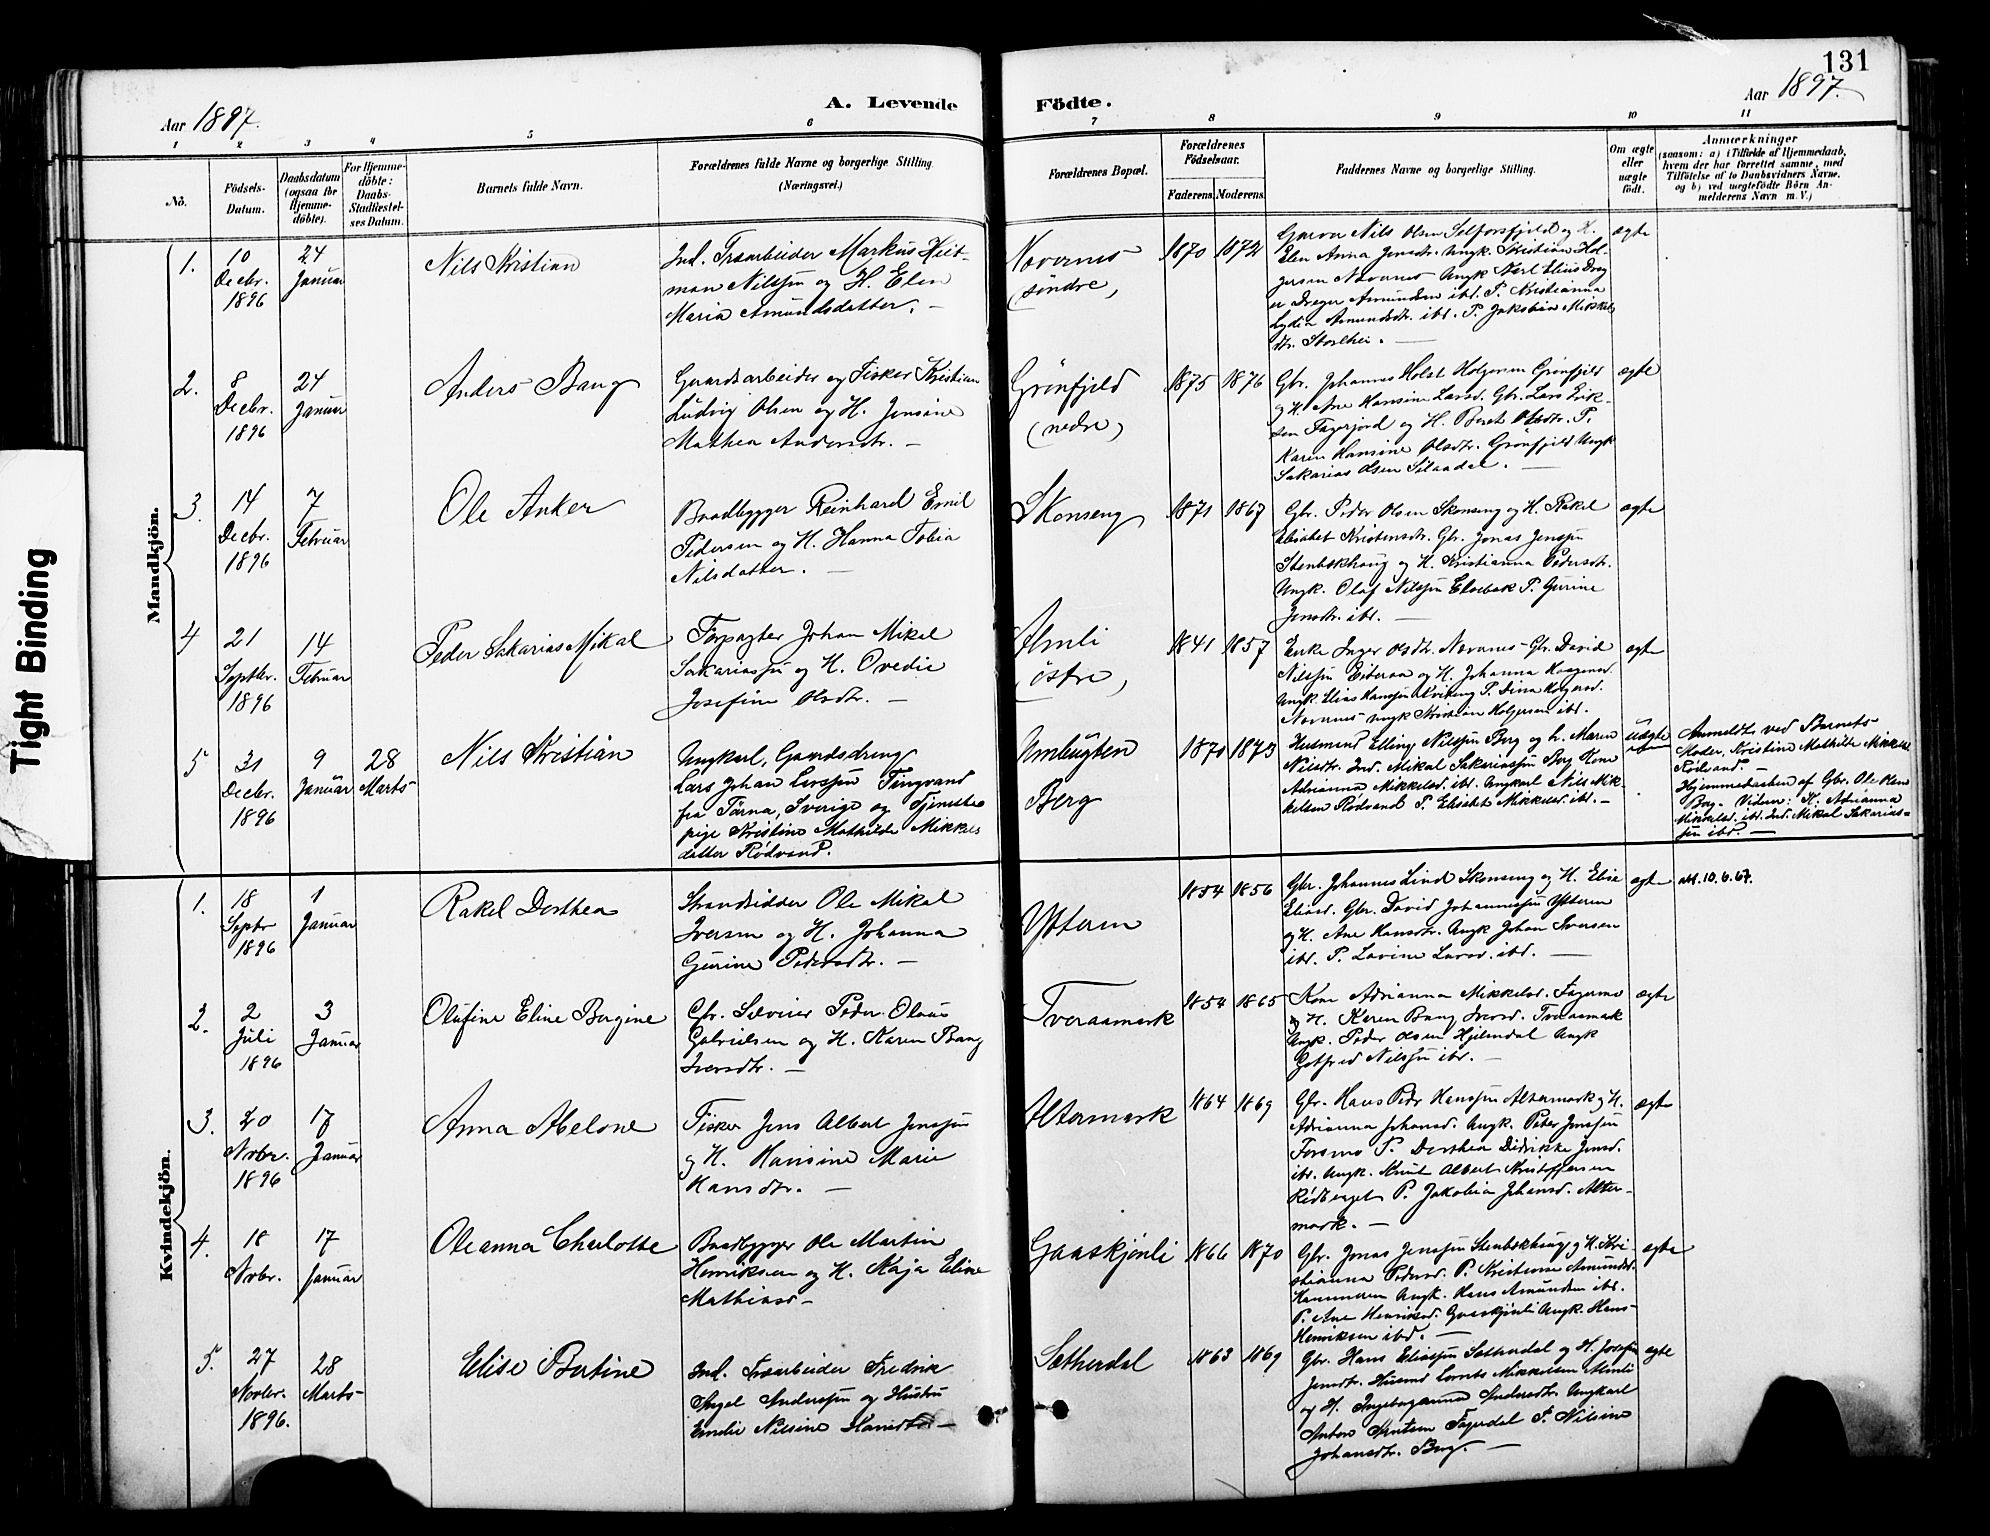 131
Aar 1897.
A. Levende
Födte.
Aar 1897.
1 2 3 4 5 6 7 8 9 10 11
No.
Födsels-
Datum.
Daabsdatum
(ogsaa for
Hjemme-
döbte).
For Hjemme-
döbte:
Daabs-
Stadfæstel-
ses Datum.
Barnets fulde Navn.
Forældrenes fulde Navne og borgerlige Stilling.
(Næringsvei.)
Forældrenes Bopæl.
Forældrenes
Födselsaar.
Faderens.
Moderens.
Faddernes Navne og borgerlige Stilling.
Om ægte
eller
uægte
födt.
Anmærkninger
(saasom: a) i Tilfælde af Hjemmedaab,
hvem der har forrettet samme, med
Tilföielse af to Daabsvidners Navne,
og b) ved uægtefödte Börn An-
melderens Navn m. V.)
Tight Binding
Mandkjön.
1.
10
Decbr.
1896
24
Januar
Nils Kristian
Ind. Træarbeider Markus Heit-
man Nilssen og H. Elen
Maria Amundsdatter. –
Nævernes
(söndre)
1870
1872
Garver Nils Olsen Selforsfjeld og H.
Elen Anna Jensdtr. Ungk. Kristian Hol-
gersen Nævernes Ungk Karl Elius
Amundsen ibd. P. Kristianna
Lydia Amundsdtr. ibd. P. Jakobine Mikkels
dtr. Storlhei. –
ægte
2.
8
Decbr.
1896
24
Januar
Anders Bang
Gaardsarbeider og Fisker Kristian
Ludvig Olsen og H. Jensine
Mathea Andersdtr. –
Grönfjeld
(nedre)
1875
1876
Gbr. Johannes Holst Holgersen Grönfjeld
og H. Ane Hansine Larsd. Gbr. Lars Erik-
sen Fagerjord og H. Beret Olsdtr. P.
Karen Hansine Olsdtr. Grönfjeld Ungk
Sakarias Olsen –
ægte
3.
14
Decbr.
1896
7
Februar
Ole Anker
Baadbygger Reinhard Emil
Pedersen og H. Hanna Tobia
Nilsdatter. –
Skonseng
1871
1867
Gbr. Peder Olsen Skonseng og H. Rakel
Elisabet Kristensdtr. Gbr. Jonas Jenssen
Stenbækhaug og H. Kristianna Pedersdtr.
Ungk. Olaf Nilssen P. Gurine
Jensdtr. ibd. –
ægte
4
21
Septbr.
1896
14
Februar
Peder Sakarias Mikal
Forpagter Johan Mikal
Sakariassen og H. Ovedie
Josefine Olsdtr. –
Almli
(östre)
1841
1857
Enke Inger Olsdtr. Nævernes Gbr. David
Nilssen Eiteraa og H. Johanna
Ungk. Elias Hanssen P. Dina Holgersd.
Nævernes Ungk Kristian Holgersen ibd.
ægte
5
31
Decbr.
1896
9
Januar
28
Marts
Nils Kristian
Ungkarl, Gaardsdreng
Lars Johan Larssen Tingvand
fra Tärna, Sverige og Tjeneste
pige Kristine Mathilde Mikkels
datter Rödvand.
Umbugten
Berg
1870
1873
Husmand Elling Nilssen Berg og h. Maren
Nilsdtr. Ind. Mikal Sakariassen Berg Kone
Adrianna Mikkelsd. ibd. Ungkarl Nils Mik-
kelsen Rödvand P. Elisabet Mikkelsd. ibd. –
uægte
Anmeldt ved Barnets
Moder, Kristine Mathilde Mikkelsd.
Rödvand. –
Hjemmedaaben af Gbr. Ole
Berg. Vidner: K. Adrianna
Mikkelsd. ibd. Ind. Mikal Sakarias-
sen ibd. –
Kvindekjön.
1.
18
Septbr
1896
1
Januar
Rakel Dorthea
Strandsidder Ole Mikal
Iversen og H. Johanna
Gurine Pedersdtr. –
Ytteren
1854
1856
Gbr. Johannes Lind Skonseng og H. Elise
Eliasd. Gbr. David Johannessen Ytteren
og H. Ane Hansdtr. Ungk Johan Iversen
ibd. P. Lovine Larsd. ibd. –
ægte
att. 10.6.67.
2.
2
Juli
1896
3
Januar
Olufine Eline Bergine
Gbr. Selveier Peder Olaus
Gabrielsen og H. Karen Bang
Iversdtr. –
Tveraamark
1854
1865
Kone Adrianna Mikkelsd. Fagermo
og H. Karen Bang Iversd. Tveraamark
Ungk. Peder Olsen Hjelendal Ungk
Gotfred Nilssen ibd. –
ægte
3.
20
Novbr.
1896
17
Januar
Anna Abelone
Fisker Jens Albert Jenssen
og H. Hansine Marie
Hansdtr. –
Altermark
1864
1869
Gbr. Hans Pedr Hanssen Altermark og H.
Adrianna Johansd. Ungk. Peter Jenssen
Forsmo P. Dorthea Didrikke Jensd.
ibd. Ungk. Knut Albert Kristoffersen
Rödberget P. Jakobia Johansd. Alter-
mark. –
ægte
4.
18
Novbr.
17
Januar
Oleanna Charlotte
Baadbygger Ole Martin
Henriksen og H. Maja Eline
Mathiasd –
Gaaskjönli
1866
1870
Gbr. Jonas Jenssen Stenbækhaug og H. Kri-
stianna Pedersd. P. Kristine Amundsd.
Ungk. Hans Amundsen ibd.
P. Ane Henriksd. Gaaskjönli Ungk. Hans
Henriksen ibd. –
ægte
5.
27
Novbr.
1896.
28
Marts
Elise Bertine
Ind. Træarbeider Fredrik
Angel Anderssen og Hustru
Emelie Nilsine Hansdtr –
Sætherdal
1863
1869
Gbr. Hans Eliassen Sætherdal og H. Josefa
Jensdtr. Husmd Lorents Mikkelsen Almli
og H. Ingeborganna Andersdtr. Ungkarl
Anton Knutsen Fagerdal P. Nilsine
Johansdtr. Berg. –
ægte